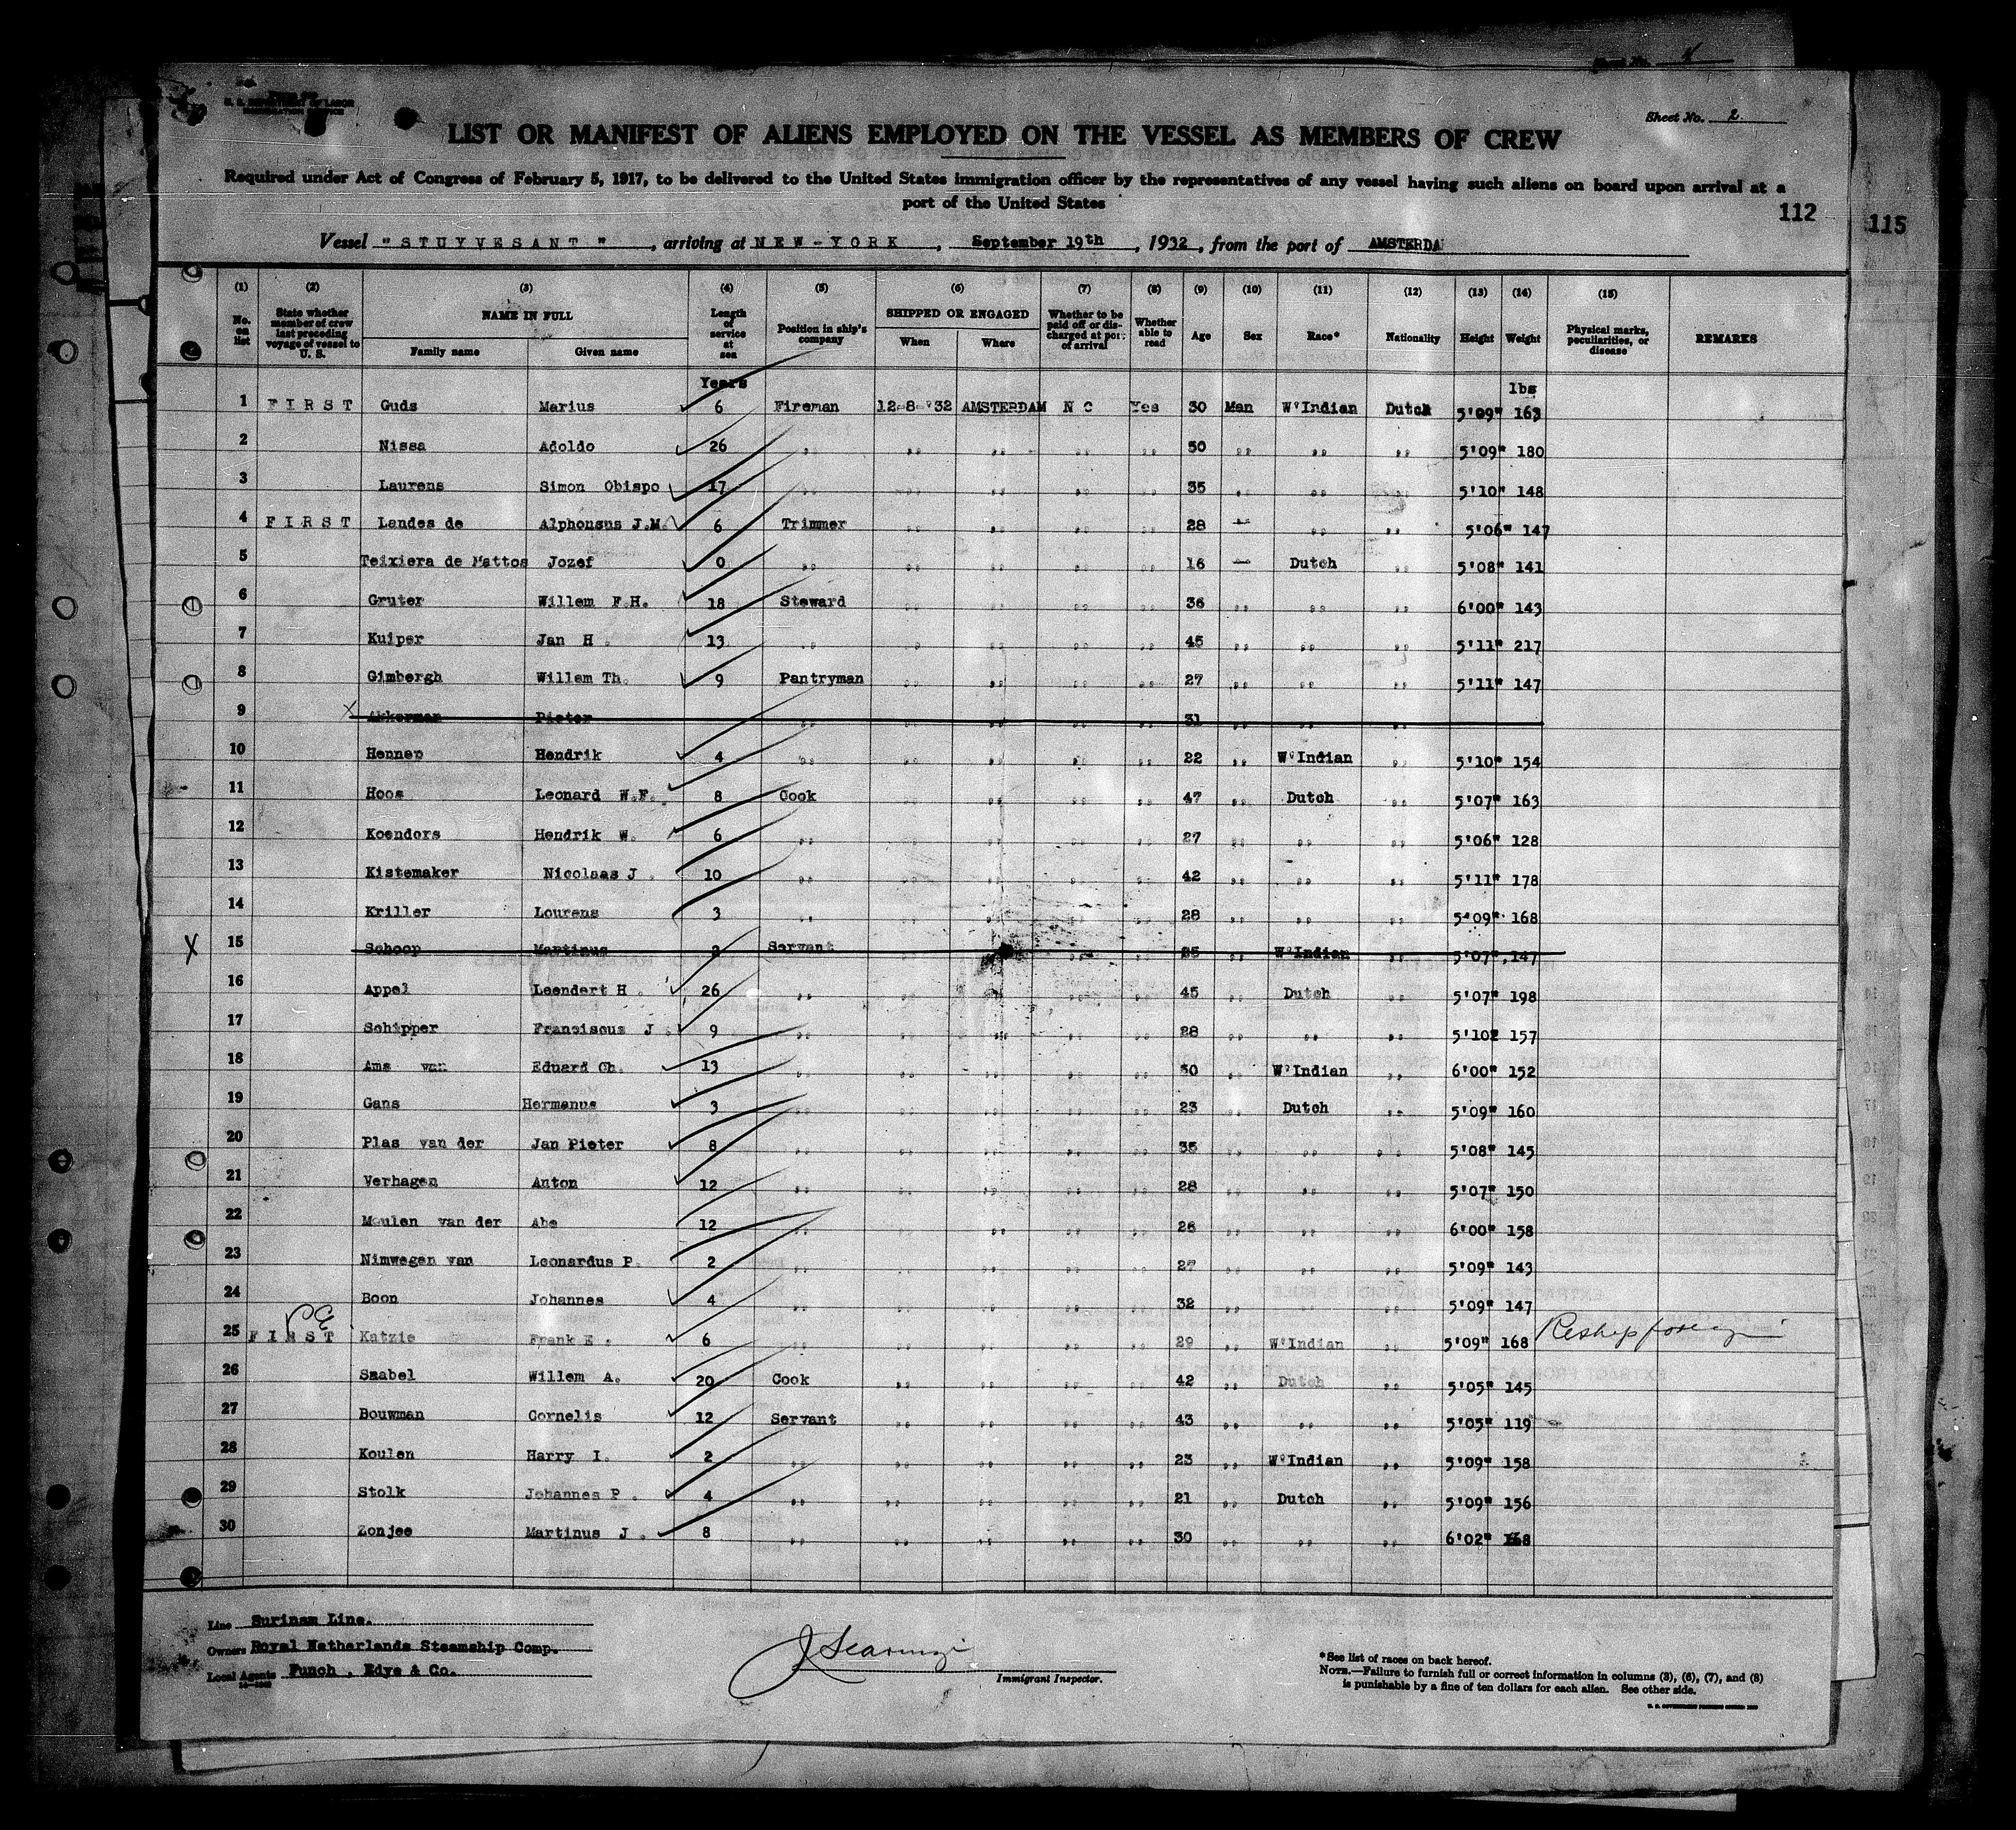 Sheet No. 2.
LIST OR MANIFEST OF ALIENS EMPLOYED ON THE VESSEL AS MEMBERS OF CREW
Required under Act of Congress of February 5, 1917, to be delivered to the United States immigration officer by the representatives of any vessel having such aliens on board upon arrival at a
port of the United States
112
115
Vessel "STUYVESANT", arriving at NEW-YORK, September 19th, 1932, from the port of AMSTERDA
(1) (2) (3) (4) (5) (6) (7) (8) (9) (10) (11) (12) (13) (14) (15)
No. on list State whether member of crew last preceding voyage of vessel to U. S. NAME IN FULL Family name Given name Length of service at sea Position in ship's company SHIPPED OR ENGAGED When Where Whether to be paid off or discharged at port of arrival Whether able to read Age Sex Race* Nationality Height Weight Physical marks, peculiarities, or disease REMARKS
Years lbs
1 FIRST Guds Marius 6 Fireman 12-8-'32 AMSTERDAM N O Yes 30 Man W'Indian Dutch 5'09" 163
2 Nissa Adoldo 26 ,, ,, ,, ,, ,, 50 ,, ,, ,, 5'09" 180
3 Laurens Simon Obispo 17 ,, ,, ,, ,, ,, 35 ,, ,, ,, 5'10" 148
4 FIRST Lendes de Alphonsus J.M. 6 Trimmer ,, ,, ,, ,, 28 ,, ,, ,, 5'06" 147
5 Teixiera de Mattos Jozef 0 ,, ,, ,, ,, ,, 16 ,, Dutch ,, 5'08" 141
6 Gruter Willem F.H. 18 Steward ,, ,, ,, ,, 36 ,, ,, ,, 6'00" 143
7 Kuiper Jan H. 13 ,, ,, ,, ,, ,, 45 ,, ,, ,, 5'11" 217
8 Gimbergh Willem Th. 9 Pantryman ,, ,, ,, ,, 27 ,, ,, ,, 5'11" 147
9 Akkerman Pieter ,, ,, ,, ,, ,, 31 ,, ,, ,,
10 Hennep Hendrik 4 ,, ,, ,, ,, ,, 22 ,, W'Indian ,, 5'10" 154
11 Hoos Leonard W.F. 8 Cook ,, ,, ,, ,, 47 ,, Dutch ,, 5'07" 163
12 Koenders Hendrik W. 6 ,, ,, ,, ,, ,, 27 ,, ,, ,, 5'06" 128
13 Kistemaker Nicolaas J. 10 ,, ,, ,, ,, ,, 42 ,, ,, ,, 5'11" 178
14 Kriller Lourens 3 ,, ,, ,, ,, ,, 28 ,, ,, ,, 5'09" 168
X 15 Schoop Martinus Servant ,, ,, ,, ,, 25 ,, W'Indian ,, 5'07" 147
16 Appel Leendert H. 26 ,, ,, ,, ,, ,, 45 ,, Dutch ,, 5'07" 198
17 Schipper Franciscus J. 9 ,, ,, ,, ,, ,, 28 ,, ,, ,, 5'102 157
18 Ams van Eduard Ch. 13 ,, ,, ,, ,, ,, 30 ,, W'Indian ,, 6'00" 152
19 Gans Hermanus 3 ,, ,, ,, ,, ,, 23 ,, Dutch ,, 5'09" 160
20 Plas van der Jan Pieter 8 ,, ,, ,, ,, ,, 35 ,, ,, ,, 5'08" 145
21 Verhagen Anton 12 ,, ,, ,, ,, ,, 28 ,, ,, ,, 5'07" 150
22 Meulen van der Abe 12 ,, ,, ,, ,, ,, 26 ,, ,, ,, 6'00" 158
23 Nimwegen van Leonardus P. 2 ,, ,, ,, ,, ,, 27 ,, ,, ,, 5'09" 143
24 Boon Johannes 4 ,, ,, ,, ,, ,, 32 ,, ,, ,, 5'09" 147
25 FIRST Katzie Frank E. 6 ,, ,, ,, ,, ,, 29 ,, W'Indian ,, 5'09" 168 Reship foreign
26 Saabel Willem A. 20 Cook ,, ,, ,, ,, 42 ,, Dutch ,, 5'05" 145
27 Bouwman Cornelis 12 Servant ,, ,, ,, ,, 43 ,, ,, ,, 5'05" 119
28 Koulen Harry I. 2 ,, ,, ,, ,, ,, 23 ,, W'Indian ,, 5'09" 158
29 Stolk Johannes P. 4 ,, ,, ,, ,, ,, 21 ,, Dutch ,, 5'09" 156
30 Zonjee Martinus J. 8 ,, ,, ,, ,, ,, 30 ,, ,, ,, 6'02" 168
Line Surinam Line.
Owners Royal Netherlands Steamship Comp.
Local Agents Funch, Edye & Co.
Immigrant Inspector.
*See list of races on back hereof.
NOTE.—Failure to furnish full or correct information in columns (3), (6), (7), and (8)
is punishable by a fine of ten dollars for each alien. See other side.